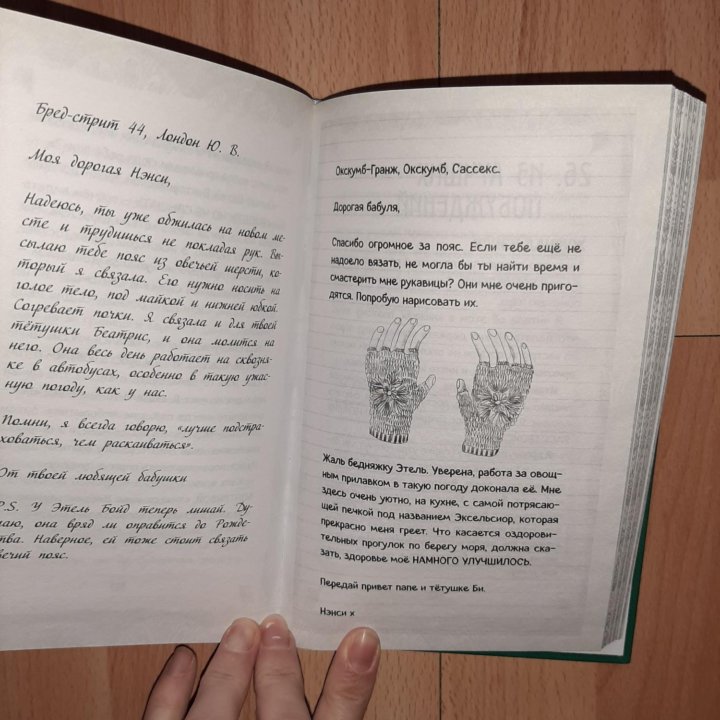 Бред-стрит 44, Лондон Ю. В.
Моя дорогая Нэнси,
Надеюсь, ты уже обжилась на новом ме-
сте и трудишься не покладая рук. Вы-
сылаю тебе пояс из овечьей шерсти, ко-
торый я связала. Его нужно носить на
голое тело, под майкой и нижней юбкой.
Согревает почки. Я связала и для твоей
тётушки Беатрис, и она молится на
него. Она весь день работает на сквозня-
ке в автобусах, особенно в такую ужас-
ную погоду, как у нас.
Помни, я всегда говорю, «лучше подстра-
ховаться, чем раскаиваться».
От твоей любящей бабушки
P.S. У Этель Бойд теперь лишай. Ду-
маю, она вряд ли оправится до Рожде-
ства. Наверное, ей тоже стоит связать
овечий пояс.
Окскумб-Гранж, Окскумб, Сассекс.
Дорогая бабуля,
Спасибо огромное за пояс. Если тебе ещё не
надоело вязать, не могла бы ты найти время и
смастерить мне рукавицы? Они мне очень приго-
дятся. Попробую нарисовать их.
Жаль бедняжку Этель. Уверена, работа за овощ-
ным прилавком в такую погоду доконала её. Мне
здесь очень уютно, на кухне, с самой потрясаю-
щей печкой под названием Эксельсиор, которая
прекрасно меня греет. Что касается оздорови-
тельных прогулок по берегу моря, должна ска-
зать, здоровье моё НАМНОГО УЛУЧШИЛОСЬ.
Передай привет папе и тётушке Би.
Нэнси х